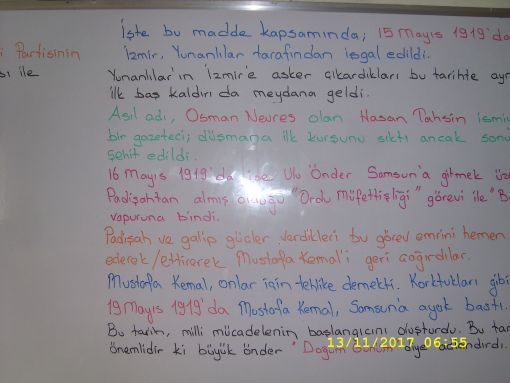 İşte bu madde kapsamında; 15 Mayıs 1919'da
i Partisinin İzmir, Yunanlılar tarafından işgal edildi.
sı ile Yunanlılar'ın İzmir'e asker çıkardıkları bu tarihte ayn
ilk baş kaldırı da meydana geldi.
Asıl adı, Osman Nevres olan Hasan Tahsin ismi
bir gazeteci; düşmana ilk kurşunu sıktı ancak sonu
şehit edildi.
16 Mayıs 1919'da ise Ulu Önder Samsun'a gitmek üz
Padişahtan almış olduğu "Ordu Müfettişliği" görevi ile "B
vapuruna bindi.
Padişah ve galip güçler verdikleri bu görev emrini hemen
ederek/ettirerek Mustafa Kemal'i geri çağırdılar.
Mustafa Kemal, onlar için tehlike demekti. Korktukları gibi
19 Mayıs 1919'da Mustafa Kemal, Samsun'a ayak bastı.
Bu tarih, milli mücadelenin başlangıcını oluşturdu. Bu tar
önemlidir ki büyük önder "Doğum Günüm" diye adlandırdı.
13/11/2017 06:55